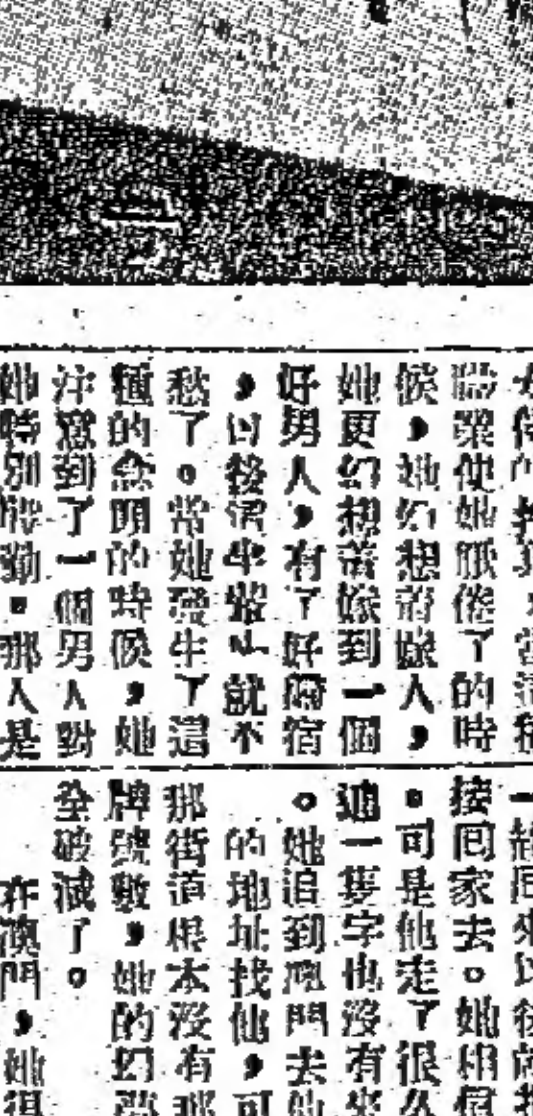 業使她厭倦了的時
候，她幻想着嫁人，
她更幻想着嫁到一個
好男人，有了好歸宿
，以後就不
愁了。當她發生了這
種的念頭的時候，她
注意到了一個男人對
她特別慇勤。那人是
接回家去。她相信
。可是他走了很久
一隻字也沒有來
。她追到澳門去
的地址找他，可
那街道根本沒有那
牌號數，她的幻夢
全破滅了。
在澳門，她